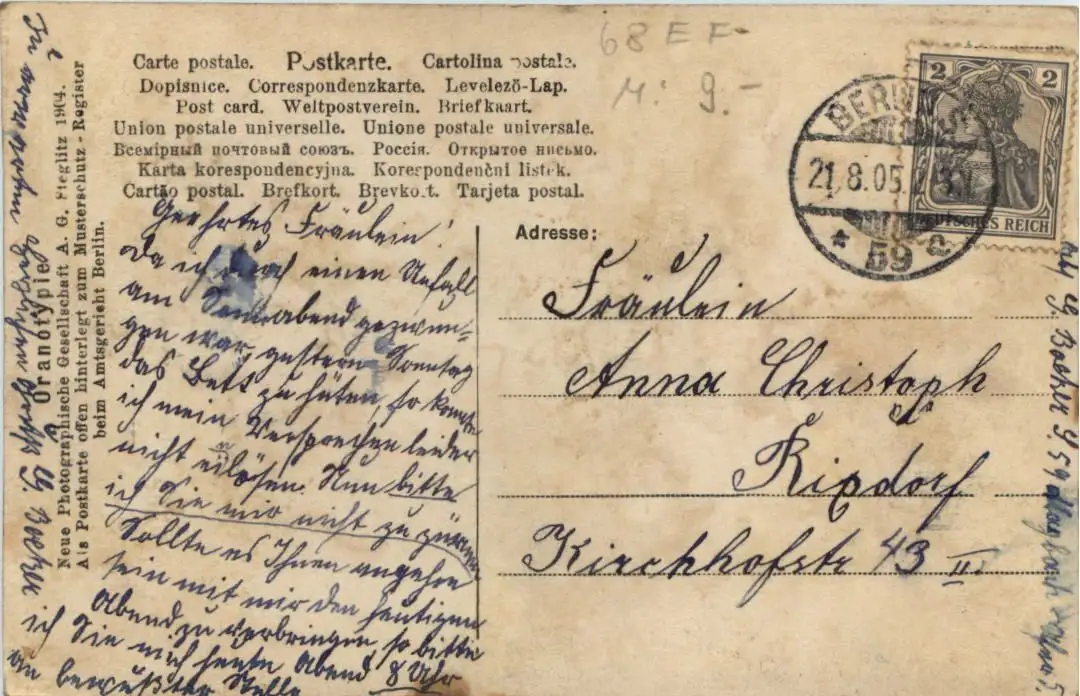 68 E F-
M: 9.-
Carte postale. Postkarte. Cartolina postale.
Dopisnice. Correspondenzkarte. Levelező-Lap.
Post card. Weltpostverein. Briefkaart.
Union postale universelle. Unione postale universale.
Всемірный почтовый союзъ. Россія. Открытое письмо.
Karta korespondencyjna. Korespondenční listek.
Cartão postal. Brefkort. Brevkort. Tarjeta postal.
2 2
DEUTSCHES REICH
BERLIN
21.8.05.
* 59 a
Geehrtes Fräulein!
Da ich durch einen Unfall
am Sonnabend gezwun-
gen war, gestern Sonntag
das Bett zu hüten, so konnte
ich mein Versprechen leider
nicht eilösen. Nun bitte
ich Sie mir nicht zu zürnen
Sollte es Ihnen angenehm
sein mit mir den heutigen
Abend zu verbringen, so bitte
ich Sie mich heute Abend 8 Uhr
an bewußter Stelle
Adresse:
Fräulein
Anna Christoph
Rixdorf
Kirchhofstr 43 II.
Oranotypie
Neue Photographische Gesellschaft A. G. Steglitz 1904.
Als Postkarte offen hinterlegt zum Musterschutz-Register
beim Amtsgericht Berlin.